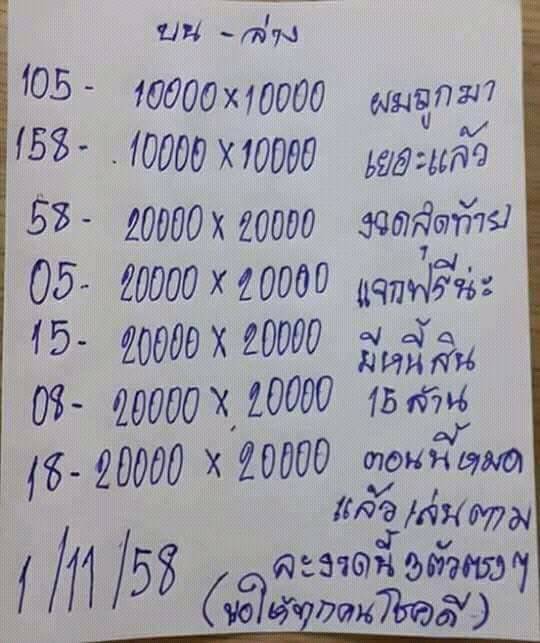 บน - ล่าง
105 - 10000 x 10000 ผมถูกมา
158 - 10000 x 10000 เยอะแล้ว
58 - 20000 x 20000 งวดสุดท้าย
05 - 20000 x 20000 แจกฟรีน่ะ
15 - 20000 x 20000 มีหนี้สิน
08 - 20000 x 20000 15 ล้าน
18 - 20000 x 20000 ตอนนี้หมด
แล้ว เล่นตาม
1/11/58 ละงวดนี้ 3ตัวตรงๆ
(ขอให้ทุกคนโชคดี)